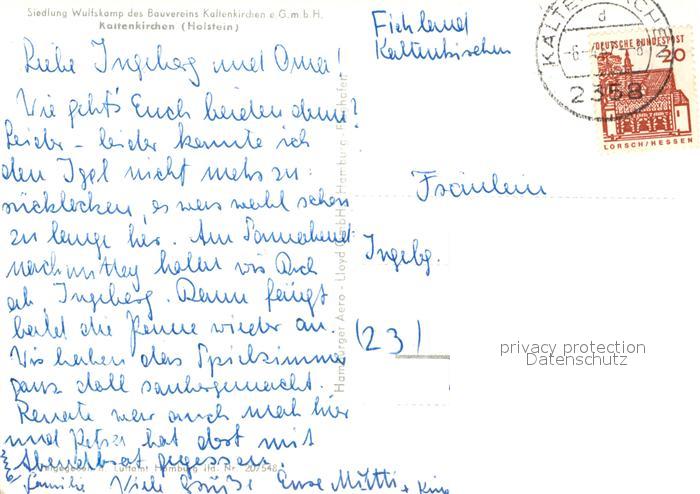 Siedlung Wulfskamp des Bauvereins Kaltenkirchen e.G.m.b.H.
Kaltenkirchen (Holstein)
Liebe Ingeberg und Oma!
Wie geht's Euch beiden denn?
Leider - leider konnte ich
den Igel nicht mehr zu-
rücklocken, es war wohl schon
zu lange her. Am Sonnabend-
nachmittag holen wir Dich
ab Ingeberg. Dann fängt
bald die Penne wieder an.
Wir haben das Spielzimmer
ganz doll saubergemacht.
Renate war auch noch hier
und Peter hat dort mit
Abendbrot gegessen.
Familie Viele Grüße Eure Mutti + Kino
Luftamt Hamburg lfd. Nr. 207548
Hamburger Aero - Lloyd GmbH, Hamburg - Flughafen
Fichland
Kaltenkirchen
KALTENKIRCHEN
d
2358
DEUTSCHE BUNDESPOST
20
LORSCH/HESSEN
Fräulein
Ingebg.
(23)
privacy protection
Datenschutz